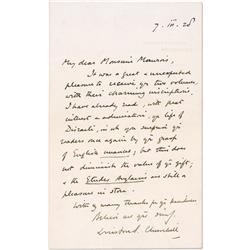 7. III. 28
My dear Monsieur Maurois,
It was a great & unexpected
pleasure to receive yr two volumes,
with their charming inscriptions.
I have already read, with great
interest & admiration, yr life of
Disraeli, in wh you surprise yr
readers once again by yr grasp
of English nuances, but this does
not diminish the value of yr gift,
& the Etudes Anglaises are still a
pleasure in store.
With many thanks for yr kindness
Believe me yrs
Winston S. Churchill